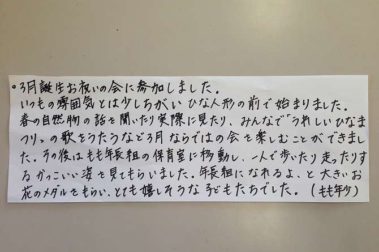 ・3月誕生お祝いの会に参加しました。
いつもの雰囲気とは少しちがい ひな人形の前で始まりました。
春の自然物の話を聞いたり実際に見たり、みんなで「うれしいひなま
つり」の歌をうたうなど3月ならではの会を楽しむことができまし
た。その後はもも年長組の保育室に移動し、一人で歩いたり走ったりす
るかっこいい姿を見てもらいました。年長組になれるよ、と大きいお
花のメダルをもらい、とても嬉しそうな子どもたちでした。(もも年少)